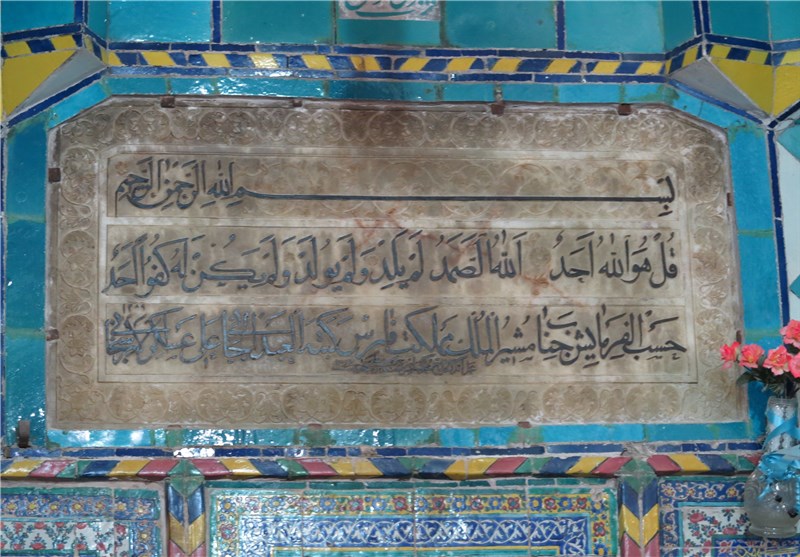 بِسْمِ اللهِ الرَّحْمٰنِ الرَّحِیْمِ
قُلْ هُوَ اللهُ اَحَدٌ اَللهُ الصَّمَدُ لَمْ یَلِدْ وَلَمْ یُولَدْ وَلَمْ یَکُنْ لَهُ کُفُوًا اَحَدٌ
حسب الفرمایش جناب مشیر الملک مملکت فارس کتبه العبد علی عسکر